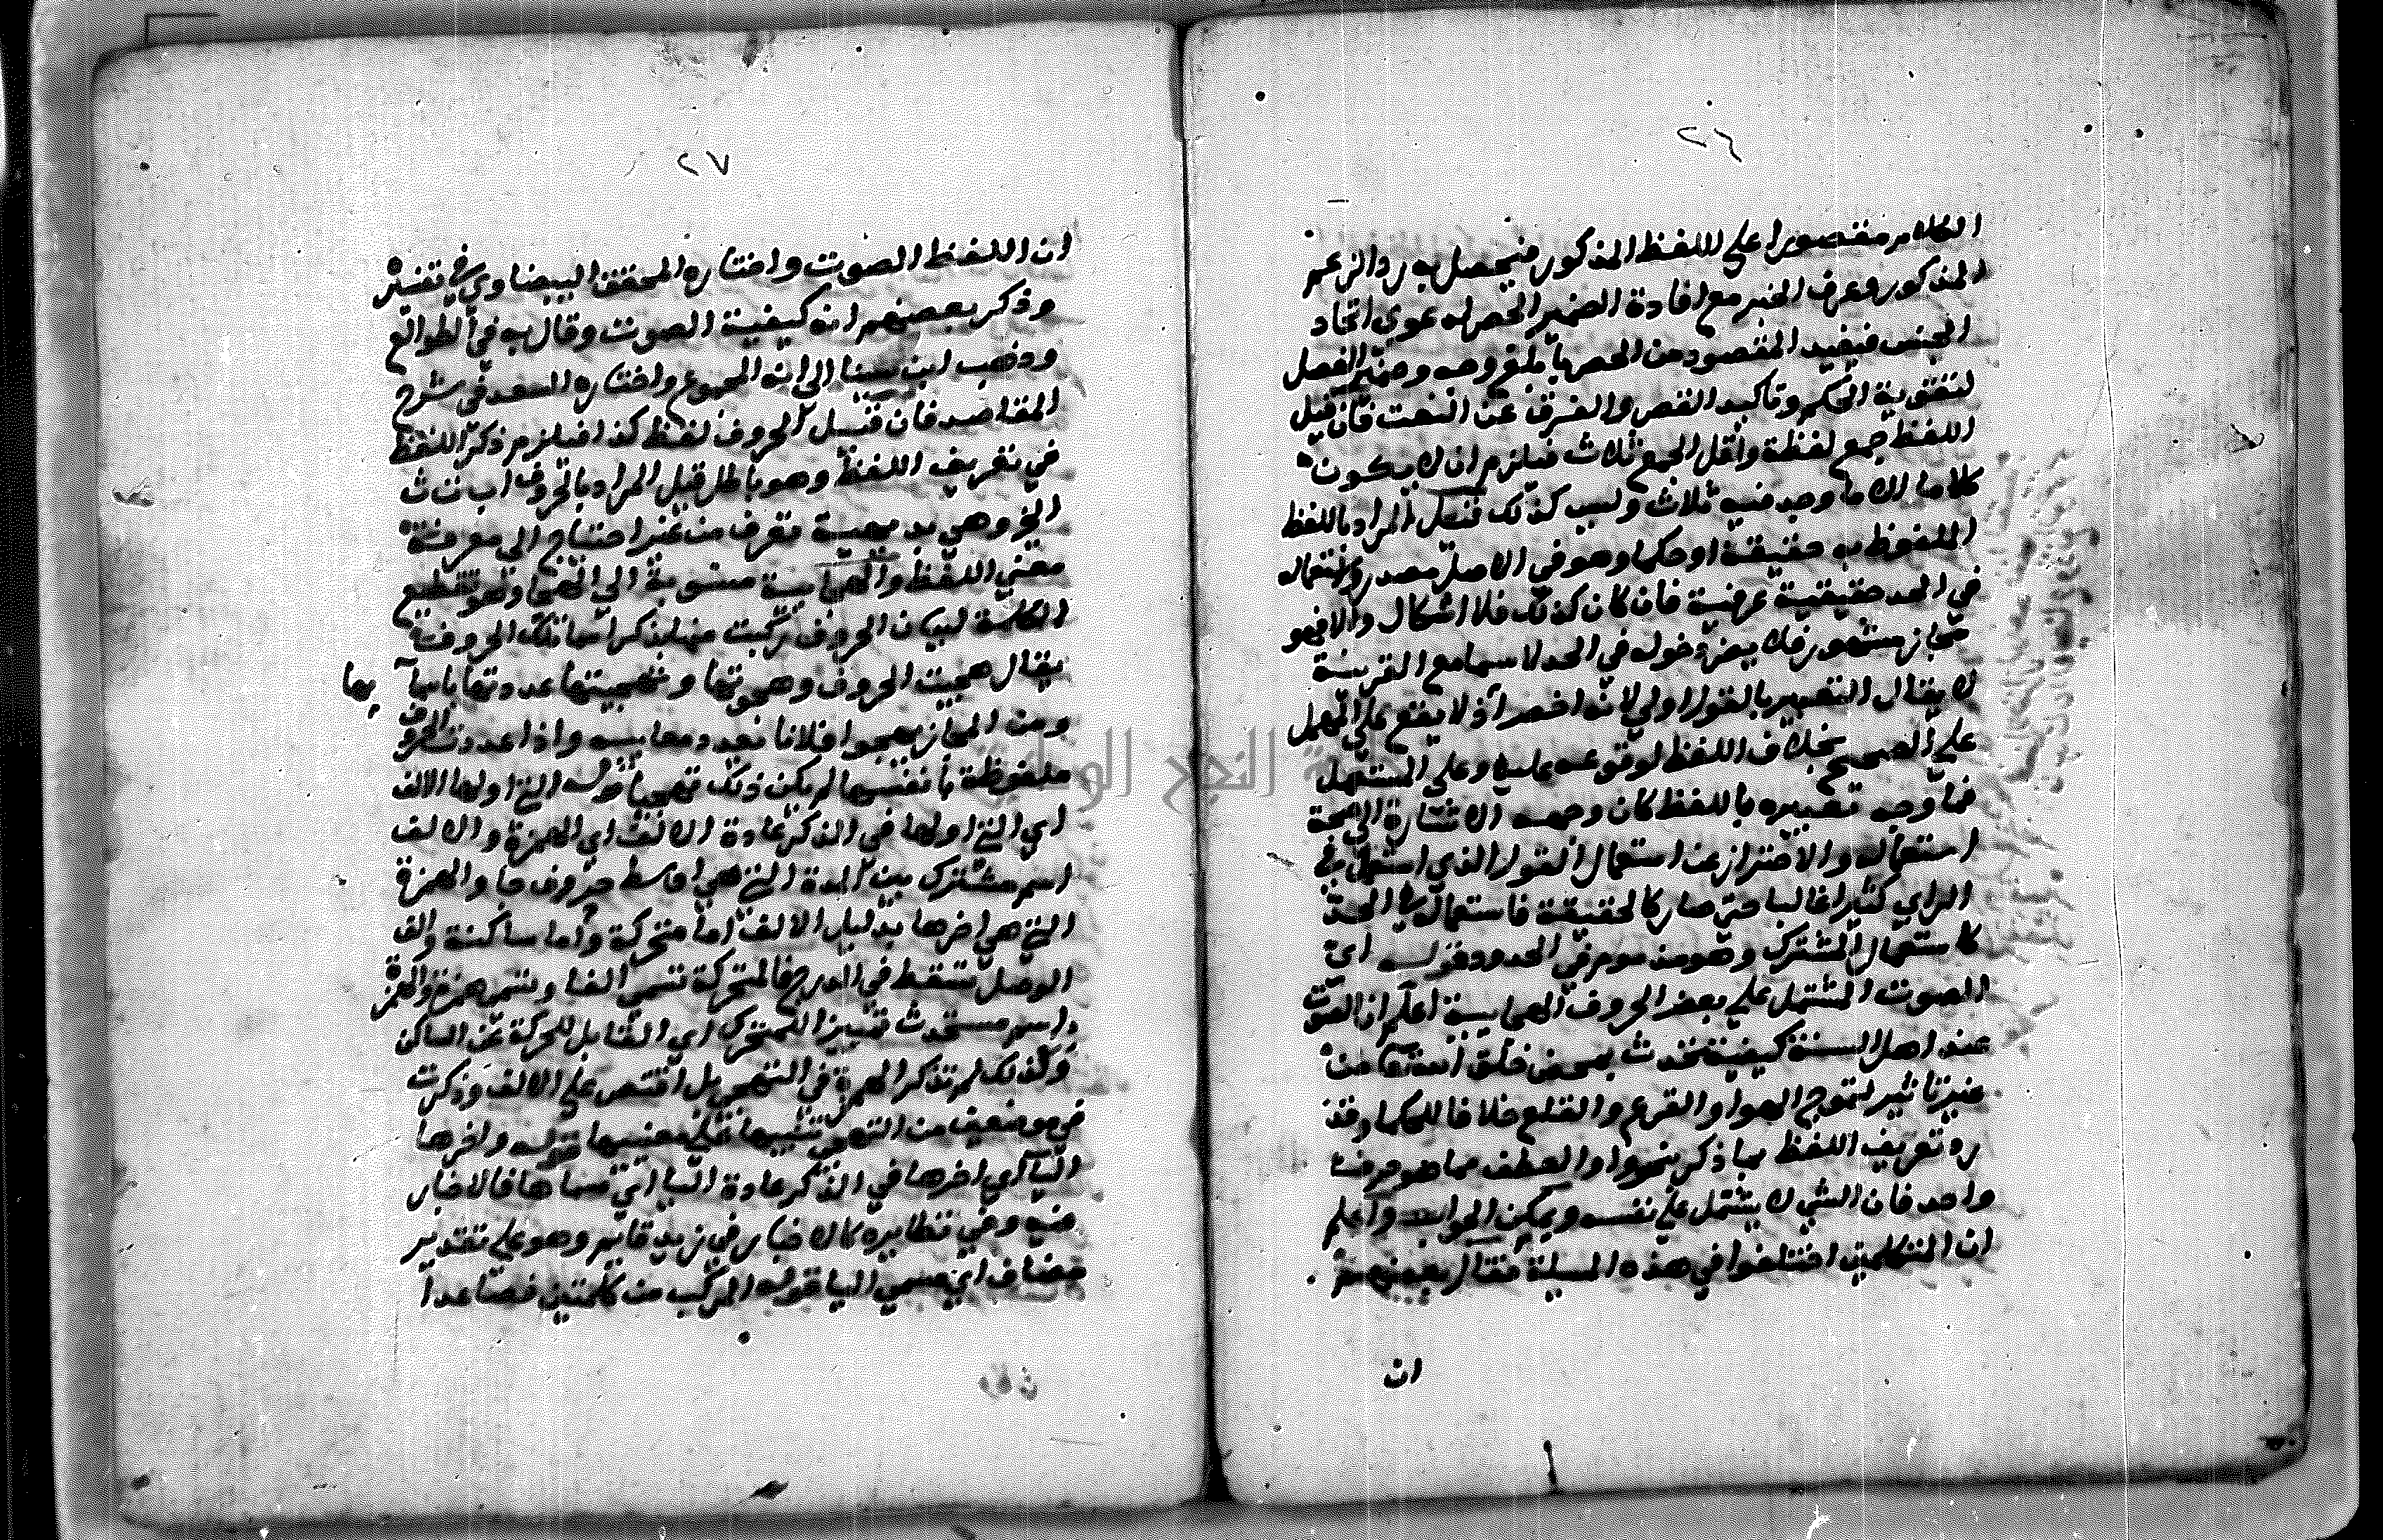 ٢٦
الكلام مقصورا على اللفظ المذكور فيحصل به رد الزعم
المذكور وعرف الخبر مع افادة الضمير الحصر لدعوى اتحاد
الجنس فيفيد المقصود من الحصر بابلغ وجه وضمير الفصل
لتقوية الحكم وتاكيد القصر والفرق عن النعت فان قيل
اللفظ جمع لفظة واقل الجمع ثلاث فيلزم ان لا يكون
كلاما الا ما وجد فيه ثلاث وليس كذلك قيل المراد باللفظ
الملفوظ به حقيقة او حكما وهو في الاصل مصدر واستعماله
في الحد حقيقية عرفية فان كان كذلك فلا اشكال والا فهو
مجاز مشهور فلا يضر دخوله في الحد لا سيما مع القرينة
لا يقال التعبير بالقول اولى لانه اخص اذ لا يقع على المهمل
على الصحيح بخلاف اللفظ لوقوعه عليه وعلى المستعمل
فما وجه تعبيره باللفظ كان وجهه الاشارة الى صحة
استعماله والاحتراز عن استعمال القول الذي استعمل في
الراي كثيرا غالبا حتى صار كالحقيقة فاستعماله في الحد
كاستعمال المشترك وهو مذموم في الحدود قوله اي
الصوت المشتمل على بعض الحروف الهجايية اعلم ان الصوت
عند اهل السنة كيفية تحدث بمحض خلق الله تعا من
غير تاثير لتموج الهوا والقرع والقلع خلافا للحكما وقد
رد تعريف اللفظ بما ذكر بنحو وا والعطف مما هو حرف
واحد فان الشي لا يشتمل على نفسه ويمكن الجواب واعلم
ان المتكلمين اختلفوا في هذه المسيلة فقال بعضهم
ان
٢٧
ان اللفظ الصوت واختاره المحقق البيضاوي في تفسيره
وذكر بعضهم انه كيفية الصوت وقال به في الطوالع
وذهب ابن سينا الى انه المجموع واختاره السعد في شرح
المقاصد فان قيل الحروف لفظ كذا فيلزم ذكر اللفظ
في تعريف اللفظ وهو باطل قيل المراد بالحروف ا ب ت ث
الخ وهي بديهية تعرف من غير احتياج الى معرفة
معنى اللفظ والهجايية منسوبة الى الهجا وهو تقطيع
الكلمة لبيان الحروف تركبت منها بذكر اسما تلك الحروف
يقال هجيت الحروف وهجوتها وتهجيتها عددتها باسمآ يها
ومن المجاز يهجوا فلانا يعدد معايبه واذا عددت الحروف
ملفوظة بانفسها لم يكن ذلك تهجيا قوله التي اولها الالف
اي التي اولها في الذكر عادة الالف اي الهمزة والالف
اسم مشترك بين المدة التي هي اوسط حروف جا والهمزة
التي هي اخرها بدليل الالف اما متحركة واما ساكنة والف
الوصل تسقط في الدرج فالمتحركة تسمى الفا وتسمى همزة والهمزة
اسم مستحدث تمييزا للمتحرك اي القابل للحركة عن الساكن
ولذلك لم تذكر الهمزة في التهجي بل اقتصر على الالف وذكرت
في موضعين من التهجي تنبيها على معنييها قوله واخرها
اليآ اي اخرها في الذكر عادة اليا اي مسماها فالاخبار
فيه وفي نظايره كالاخبار في زيد قايم وهو على تقدير
مضاف اي مسمى اليا قوله المركب من كلمتين فصاعدا